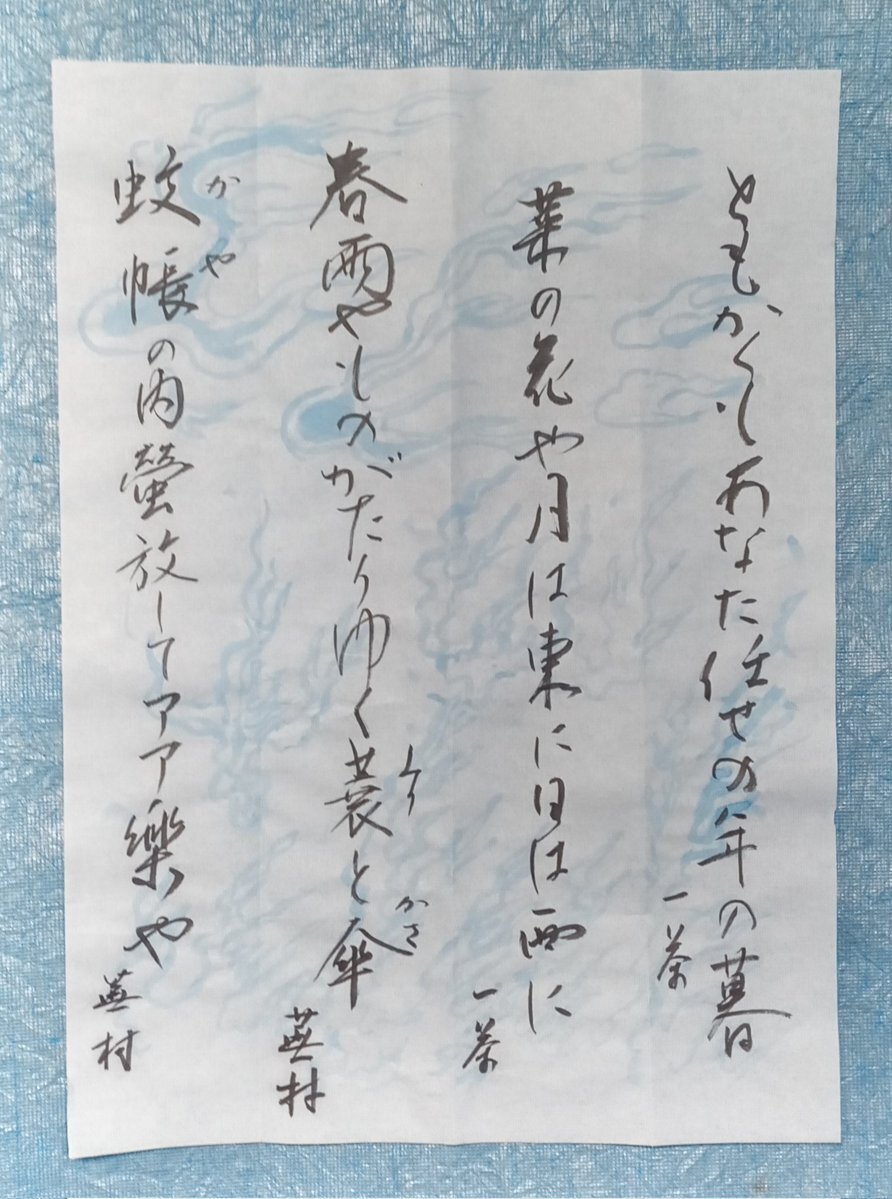 ともかくもあなた任せの年の暮
一茶
菜の花や月は東に日は西に
一茶
春雨やものがたりゆく蓑と傘
かさ
蕪村
蚊帳の内螢放してアア樂や
かや
蕪村